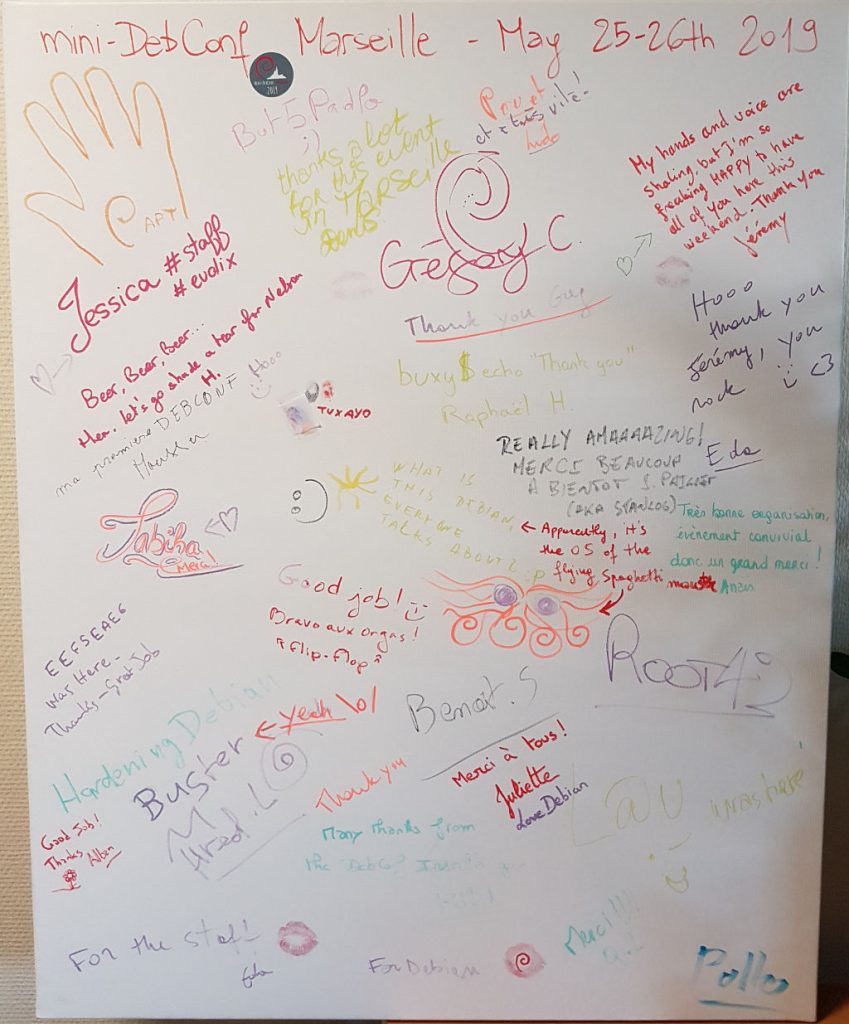 mini-DebConf Marseille - May 25-26th 2019
2019
But 5 Padlo
;)
thanks a lot
for this event
in Marseille
Denis
Privjet
et à très vite!
ludo
My hands and voice are
shaking, but I'm so
freaking HAPPY to have
all of you here this
weekend. Thank you
Jérémy
APT
Grégory C.
Jessica #staff
#evolix
Thank you Greg
Hooo
thank you
Jérémy, you
rock
<3
Eda
Beer, Beer, Beer...
then, let's go shade a tear for Nelson
H.
Hooo
ma première DEBCONF
Moussa
TUXAYO
buxy$ echo "Thank you"
Raphaël H.
REALLY AMAAAAZING!
MERCI BEAUCOUP
A BIENTOT S. PAILLET
(AKA STANLOG)
WHAT IS
THIS DEBIAN,
EVERYONE
TALKS ABOUT? :p
← Apparently, it's
the OS of the
flying Spaghetti
Très bonne organisation,
évènement convivial
donc un grand merci!
Tabiha
Merci!
Good job!
Bravo aux orgas!
Flip-Flop
EEFSEAE6
was Here -
Thanks - Great Job
Root42
Hardening Debian
Buster
← Yeah \o/
Benoit.S
Mred.L
Thank you
Merci à tous!
Juliette
Love Debian
Good Job!
Thanks
Alban
Many thanks from
the
L@U was here
For the staff
Eda
For Debian
Merci!!!!
Pollo